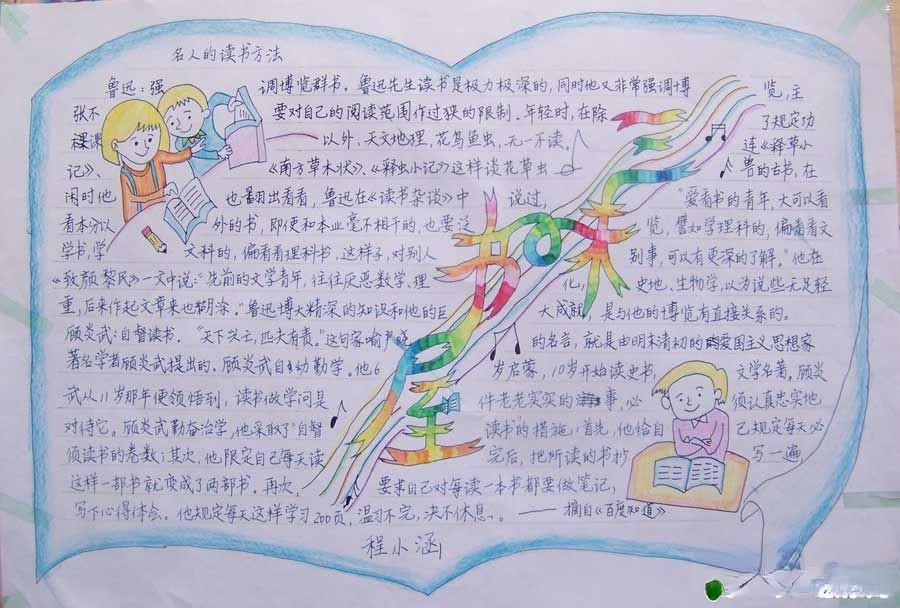 名人的读书方法
鲁迅：强 调博览群书。鲁迅先生读书是极力极深的，同时他又非常强调博 览，主
张不 要对自己的阅读范围作过狭的限制。年轻时，在除 了规定功
课课 以外，天文地理，花鸟鱼虫，无一不读。 连《释草小
记》、 《南方草木状》、《释虫小记》这样谈花草虫 兽的古书，在
闲时他 也翻出看看，鲁迅在《读书杂谈》中 说过， "爱看书的青年，大可以看
看本分以 外的书，即便和本业毫不相干的，也要泛 览，譬如学理科的，偏看看文
学书，学 文科的，偏看看理科书，这样子，对别人 别事，可以有更深的了解。"他在
《致颜黎民》一文中说："先前的文学青年，往往厌恶数学，理 化， 史地，生物学，以为说些无足轻
重，后来作起文章来也糊涂。"鲁迅博大精深的知识和他的巨 大成就，是与他的博览有直接关系的。
顾炎武：自督读书。"天下兴亡，匹夫有责。"这句家喻户晓 的名言，就是由明末清初的爱国主义思想家
著名学者顾炎武提出的。顾炎武自幼勤学。他6 岁启蒙，10岁开始读史书， 文学名著。顾炎
武从11岁那年便领悟到，读书做学问是 件老老实实的事，必 须认真忠实地
对待它。顾炎武勤奋治学，他采取了"自督 读书"的措施：首先，他给自 己规定每天必
须读书的卷数；其次，他限定自己每天读 完后，把所读的书抄 写一遍
这样一部书就变成了两部书。再次， 要求自己对每读一本书都要做笔记，
写下心得体会。他规定每天这样学习200页，温习不完，决不休息。 ——摘自《百度知道》
程小涵